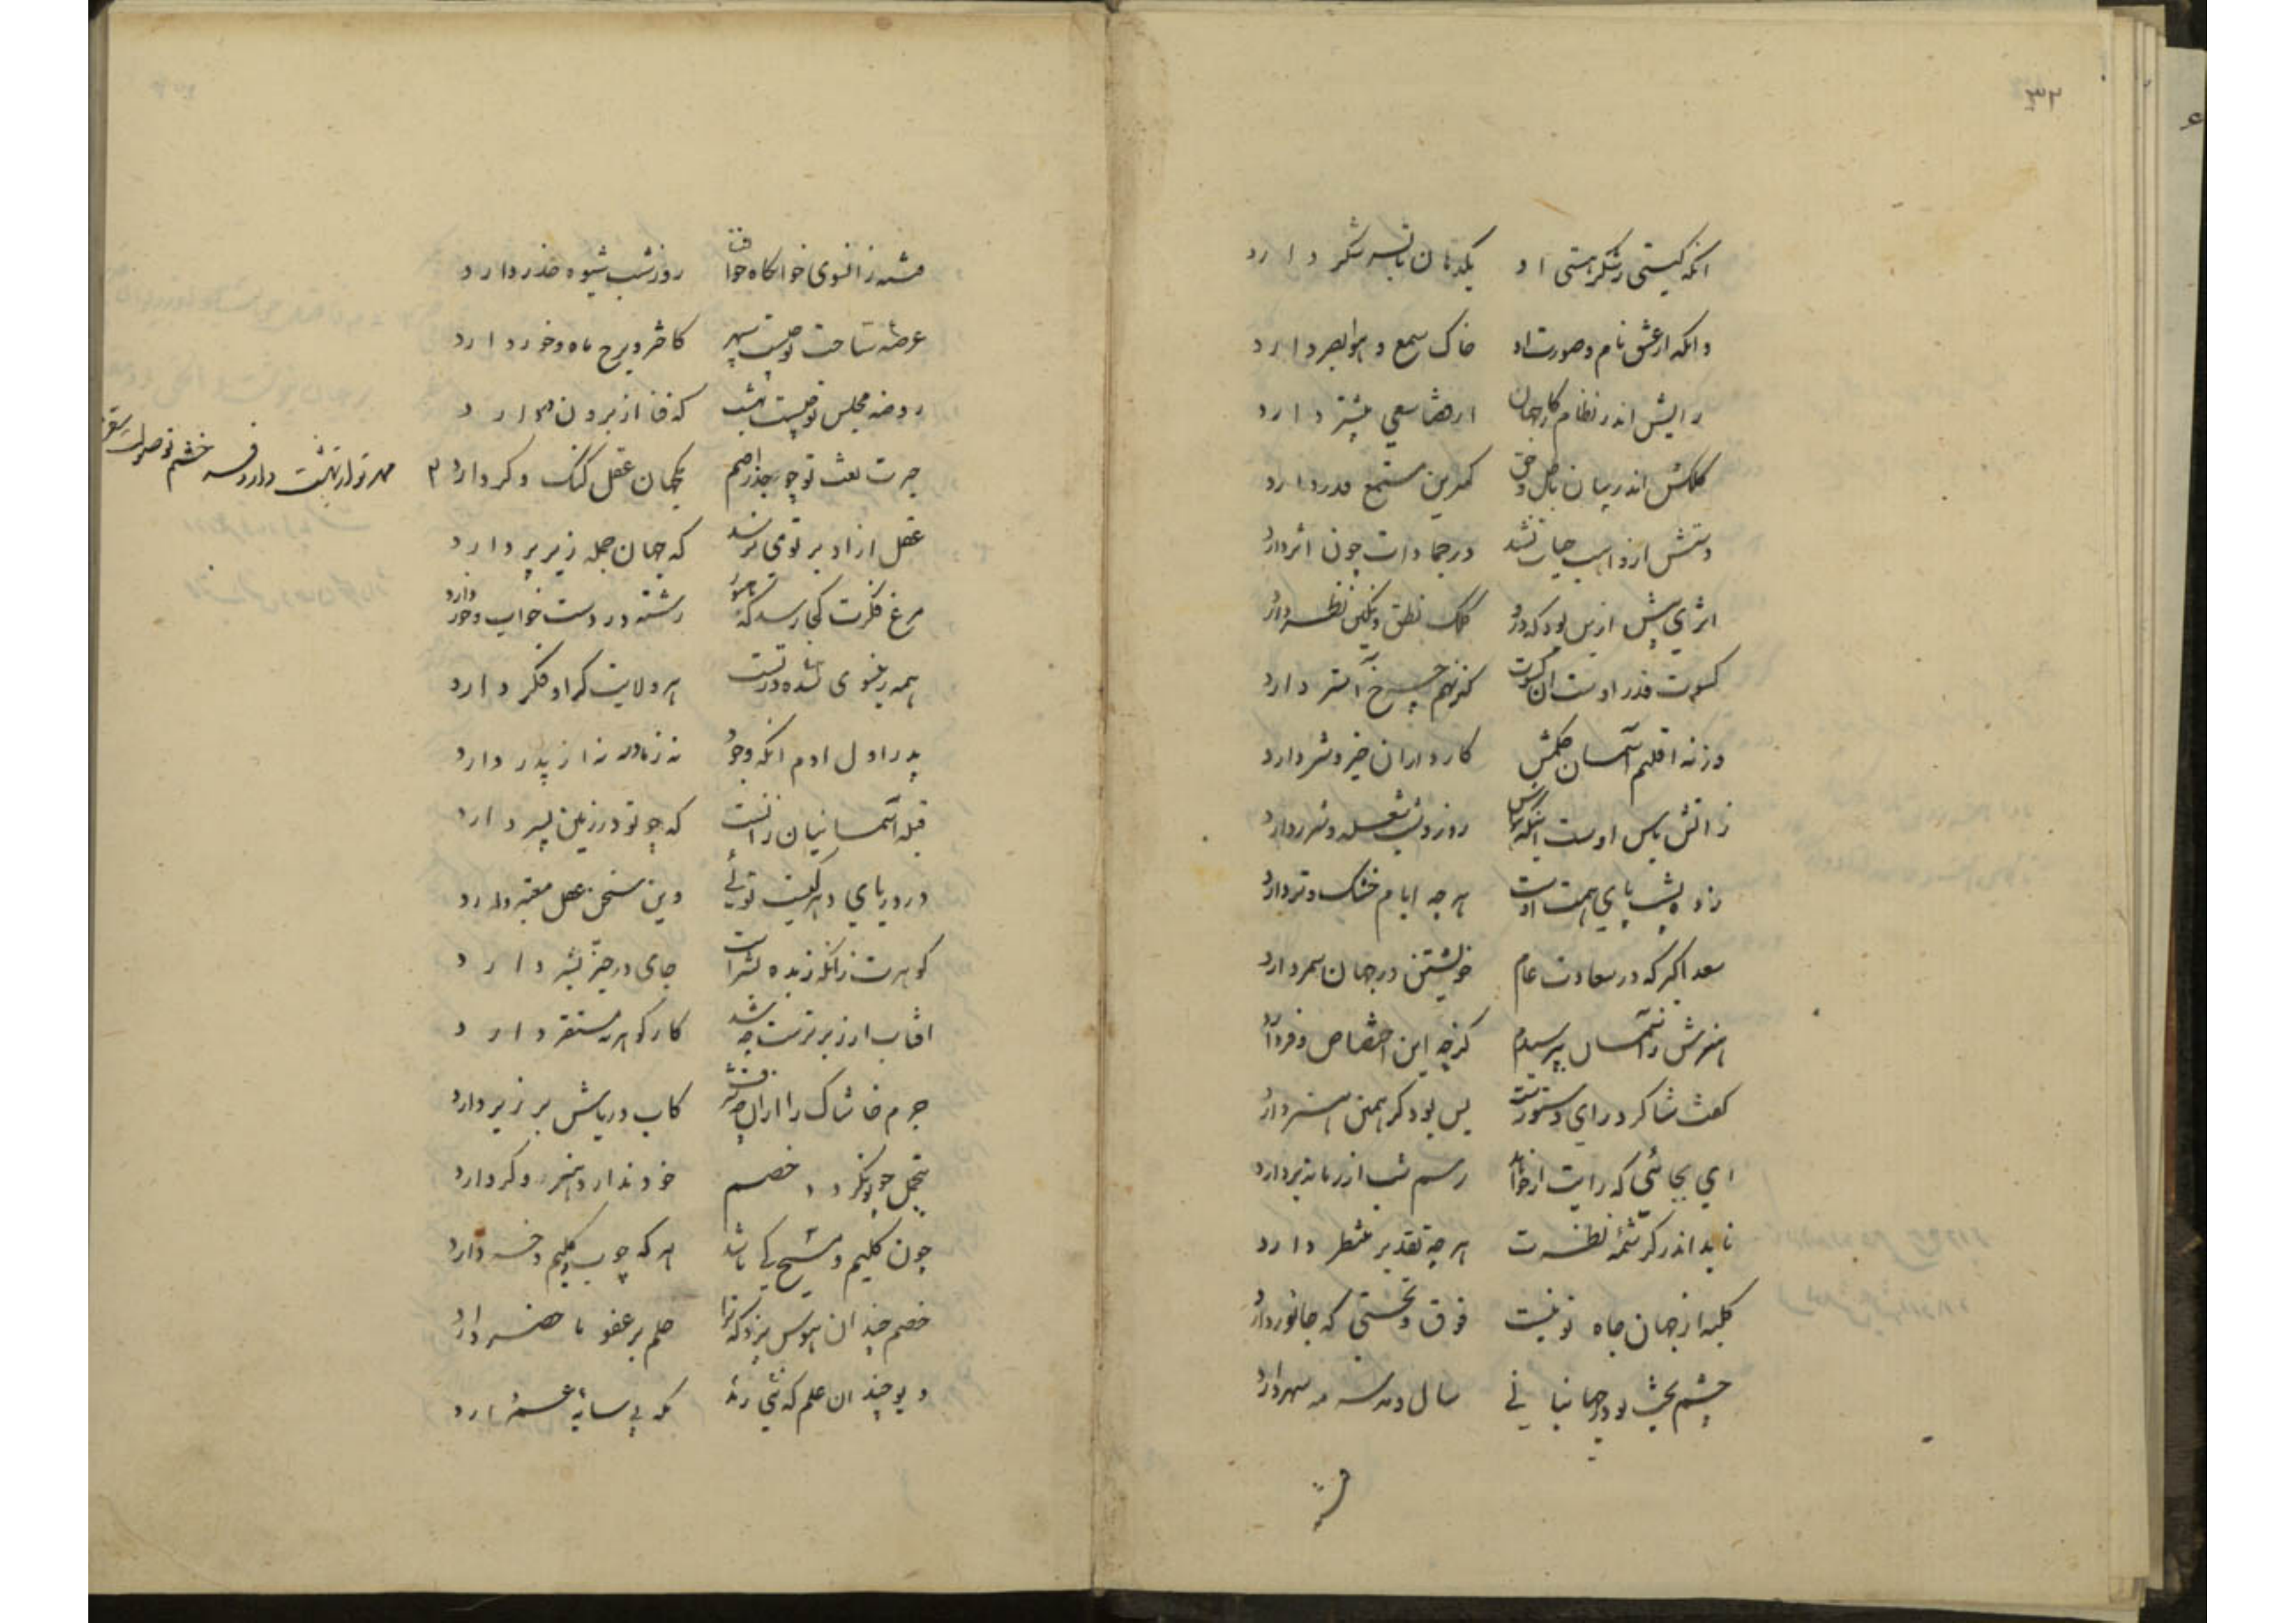 ۳۳
انکه کیتی ز شکر هستی او یکدهان پر شکر دارد
وانکه از عشق نام و صورت او خاک سمع و هوا بصر دارد
رایش اندر نظام کار جهان از قضا سعی بیشتر دارد
کلکش اندر بیان باطل و حق کمترین مستمع قدر دارد
دستش ار واهب حیات نشد در جمادات چون اثر دارد
اثری بیش ازین بود که ازو کلک نطق و نکین نظر دارد
کسوت قدر اوست ان کسوت کز نهم چرخ آستر دارد
وز نه اقلیم آسمان حکمش کارداران خیر و شر دارد
ز اتش باس اوست اینکه روز و شب شعله و شرر دارد
زده پشت پای همت اوست هر چه ایام خشک و تر دارد
سعد اکبر که در سعادت عام خویشتن در جهان سمر دارد
هنرش ز آسمان بپرسیدم کز چه این اختصاص و فر دارد
کفت شاکرد رای دستورست بس بود کر همین هنر دارد
ای بجائی که رایت ار خواهد رسم شب از زمانه بردارد
ناید اندر کرشمه نظرت هر چه تقدیر منتظر دارد
کلبه از جهان جاه تو نیست فوق و تحتی که جانور دارد
چشم بخت بود جهانبانی سال و مه سر مه سهر دارد
فتنه
فتنه زانسوی خوابکاه فنا روز و شب شیوه حذر دارد
عرصه ساحت تو چیست سپهر کاختر و برج و ماه و خور دارد
روضه مجلس تو چیست بهشت که فنا از برون در دارد
حیرت نعت تو چو جذر اصم یکجهان عقل کنک و کر دارد
مهر تو از بهشت دارد فر خشم تو صولت سقر
عقل ازادبر تو می نرسد که جهان جمله زیر پر دارد
مرغ فکرت کجا رسد که هنوز رشته در دست خواب و خور دارد
همه زیر نسوی شاه در تست هر ولایت که او فکر دارد
پدر اول ادم انکه وجود نه ز مادر نه از پدر دارد
قبله آسمانیان زانست که چو تو در زمین پسر دارد
در دریای دهر کیست توئی وین سخن عقل معتبر دارد
کوهرت زانکه زبده بشر است جای در حیز بشر دارد
افتاب ار زبرترست چه شد کار کوهر نه مستقر دارد
جرم خاشاک را ازان چه شرف کاب دریاش بر زبر دارد
بتجمل چو تو نکردد خصم خود ندارد هنر وکر دارد
چون کلیم و مسیح کی باشد هر که چوب و کلیم و خر دارد
خصم چندان هوس پزد که ترا حلم بر عفو ما حضر دارد
دیو چندان علم که نی زند که بی سایه عمر دارد